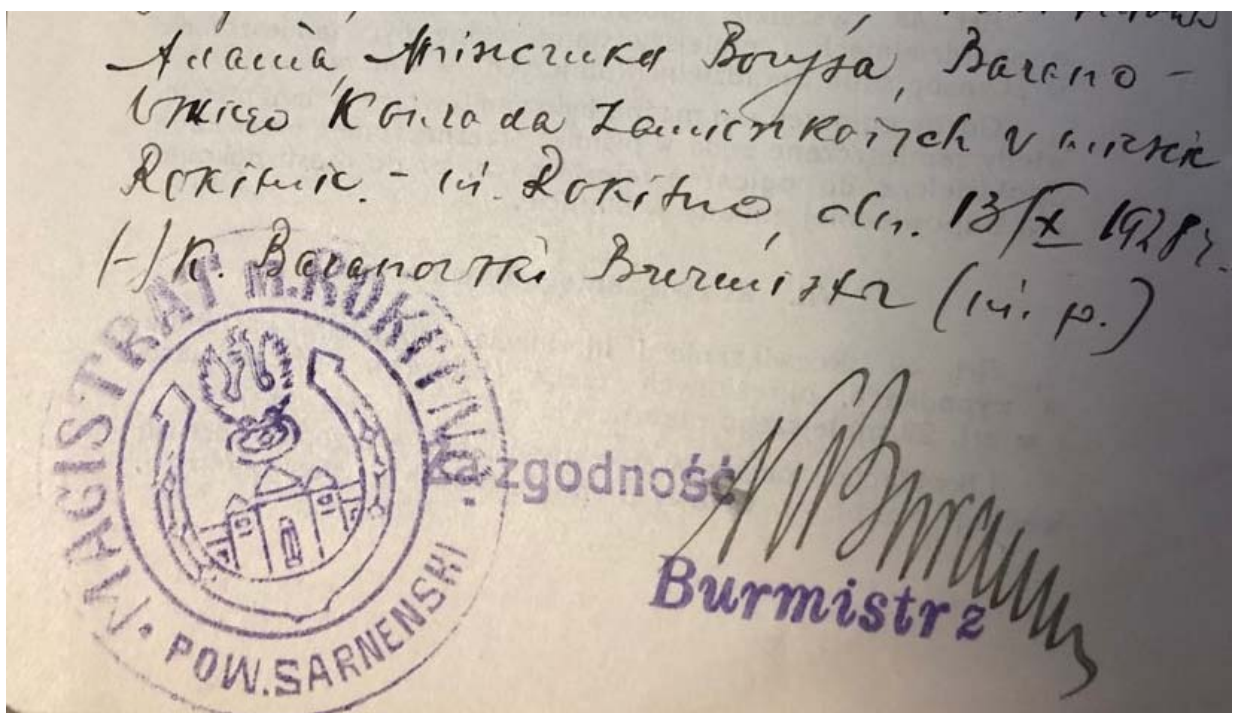 Adama, Minczuka Borysa, Barano-
wskiego Konrada Zamieszkałych w mieście
Rokitnie - m. Rokitno, dn. 13/X 1928 r.
(-) K. Baranowski Burmistrz (m. p.)
MAGISTRAT M. ROKITNO
POW. SARNENSKI
Za zgodność
Burmistrz